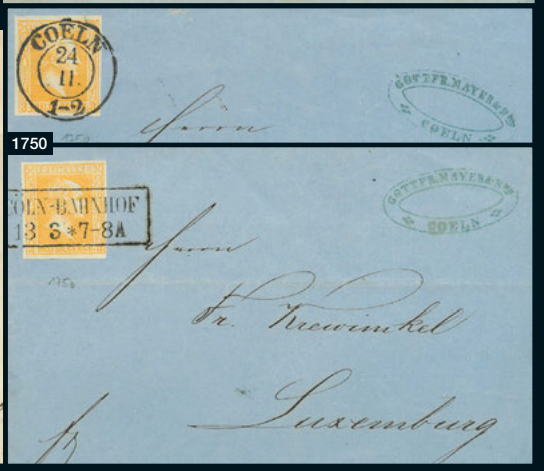 COELN
24
11.
1-2
GOTTFR. MAYER & Co
COELN
Herrn
1750
1750
CÖLN-BAHNHOF
13 3 * 7-8A
GOTTFR. MAYER & Co
COELN
1750
Herrn
Fr. Krewinkel
Luxemburg